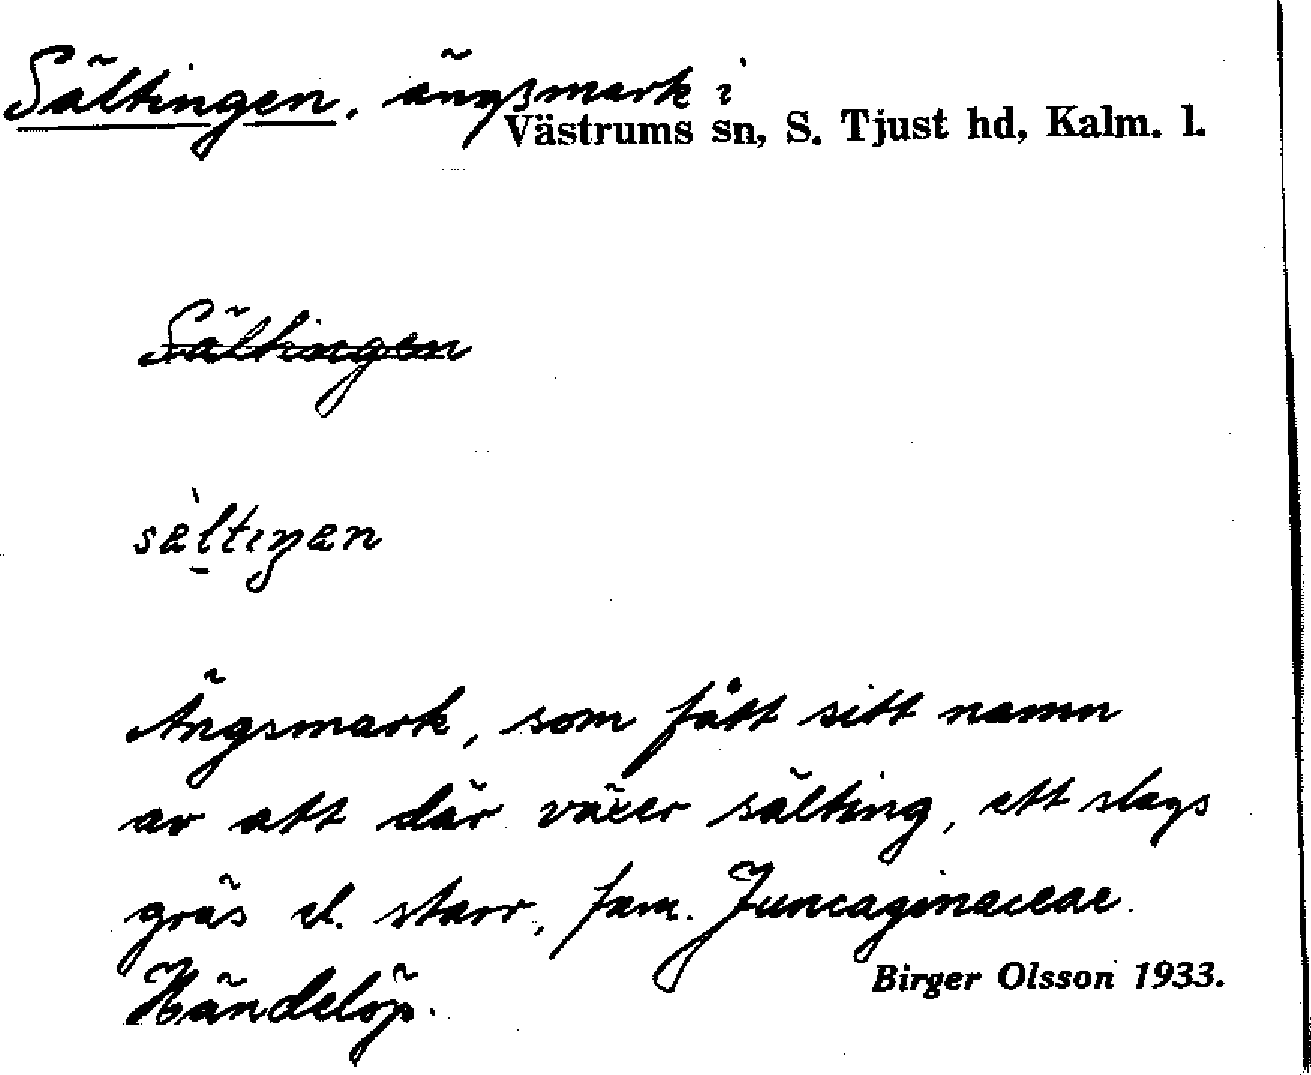 Sältingen, ängsmark i
Västrums sn, S. Tjust hd, Kalm. l.
Sältingen
sältiŋen
Ängsmark, som fått sitt namn
av att där växer sälting, ett slags
gräs el. starr, fam. Juncaginaceae.
Händelöp.
Birger Olsson 1933.